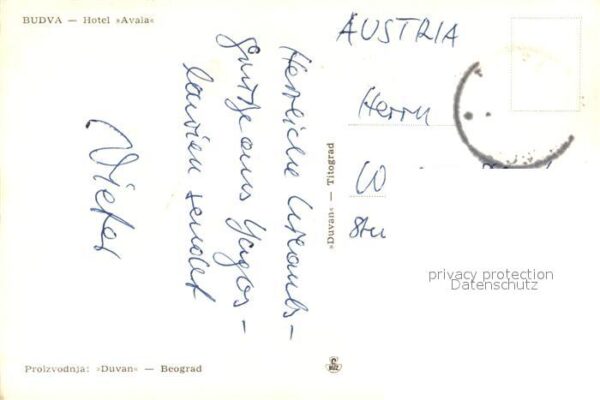 BUDVA — Hotel »Avala«
Herzliche Urlaubs-
grüße aus Jugos-
lawien sendet
»Duvan« — Titograd
AUSTRIA
Herrn
W
privacy protection
Datenschutz
Proizvodnja: »Duvan« — Beograd